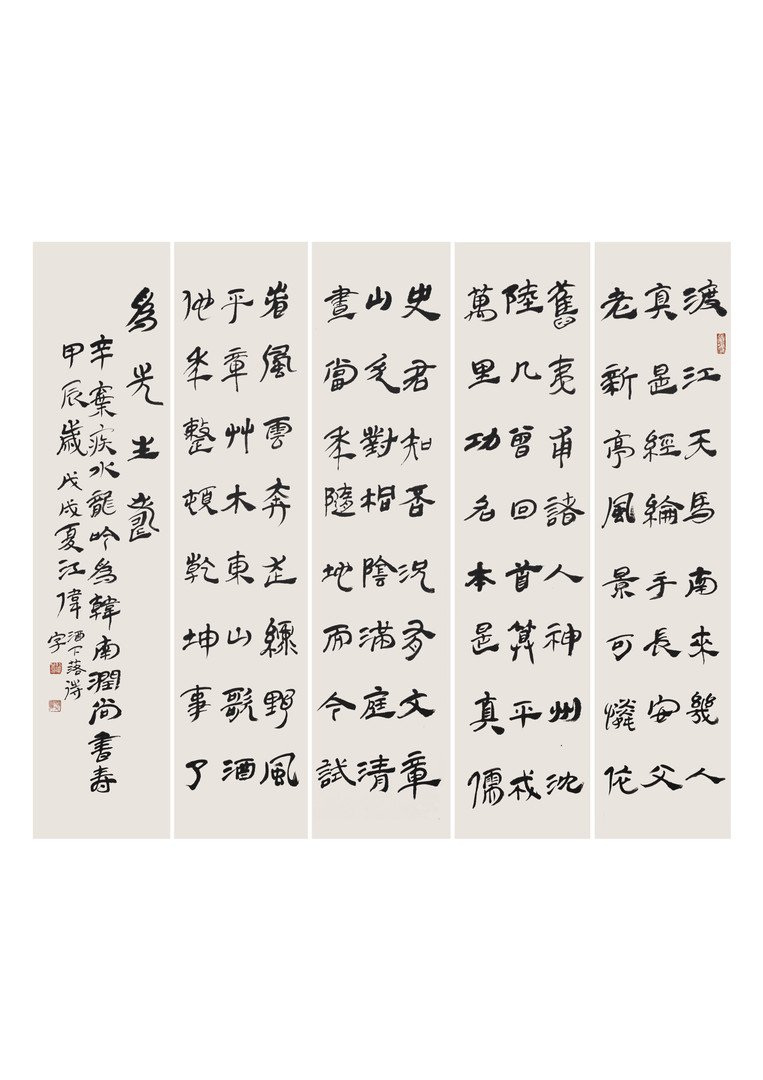 渡江天馬南來幾人
真是經綸手長安父
老新亭風景可憐依
舊夷甫諸人神州沈
陸几曾回首算平戎
萬里功名本是真儒
史君知否況有文章
山斗對桐陰滿庭清
晝當年墮地而今試
看風雲奔走綠野風
平章艸木東山歌酒
他年整頓乾坤事了
為先生壽
辛棄疾水龍吟為韓南澗尚書壽
甲辰歲戊戌夏江偉
酒下落得
字